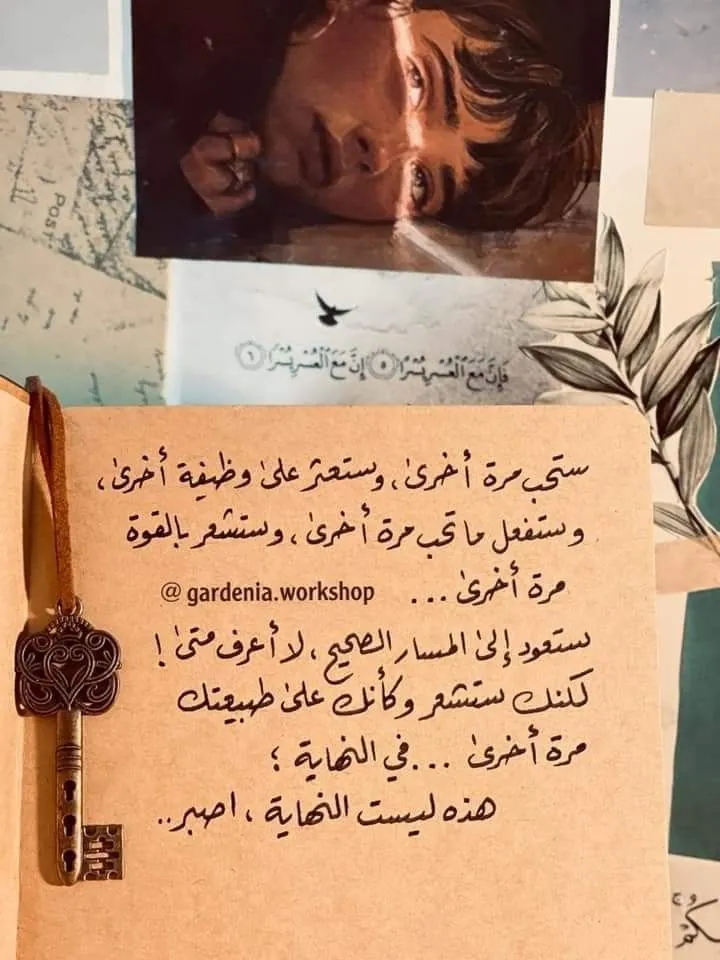 POST
فَإِنَّ مَعَ الْعُسْرِ يُسْرًا ٥ إِنَّ مَعَ الْعُسْرِ يُسْرًا ٦
ستحب مرة أخرىٰ، وستعثر علىٰ وظيفة أخرىٰ،
وستفعل ما تحب مرة أخرىٰ، وستشعر بالقوة
مرة أخرىٰ ...
@ gardenia.workshop
ستعود إلىٰ المسار الصحيح، لا أعرف متىٰ !
لكنك ستشعر وكأنك علىٰ طبيعتك
مرة أخرىٰ ... في النهاية ؛
هذه ليست النهاية ، اصبر..